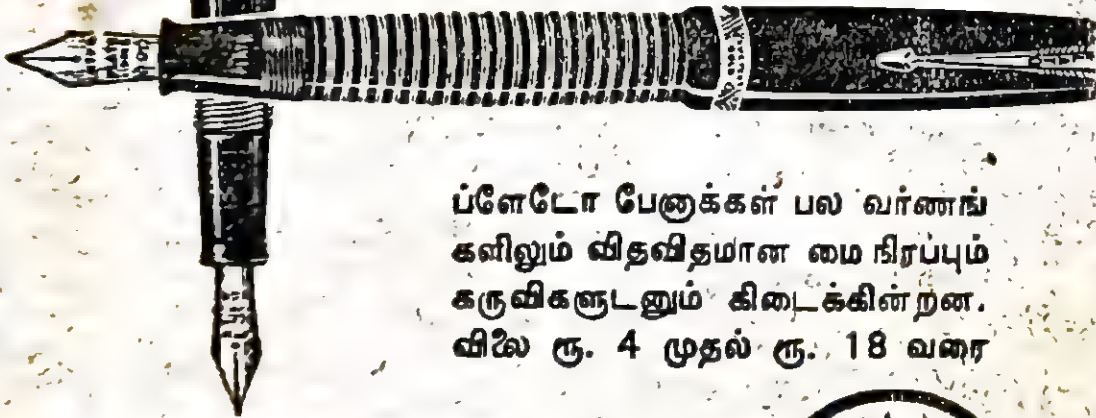 ப்ளேடோ பேனாக்கள் பல வர்ணங்
களிலும் விதவிதமான மை நிரப்பும்
கருவிகளுடனும் கிடைக்கின்றன.
விலை ரூ. 4 முதல் ரூ. 18 வரை